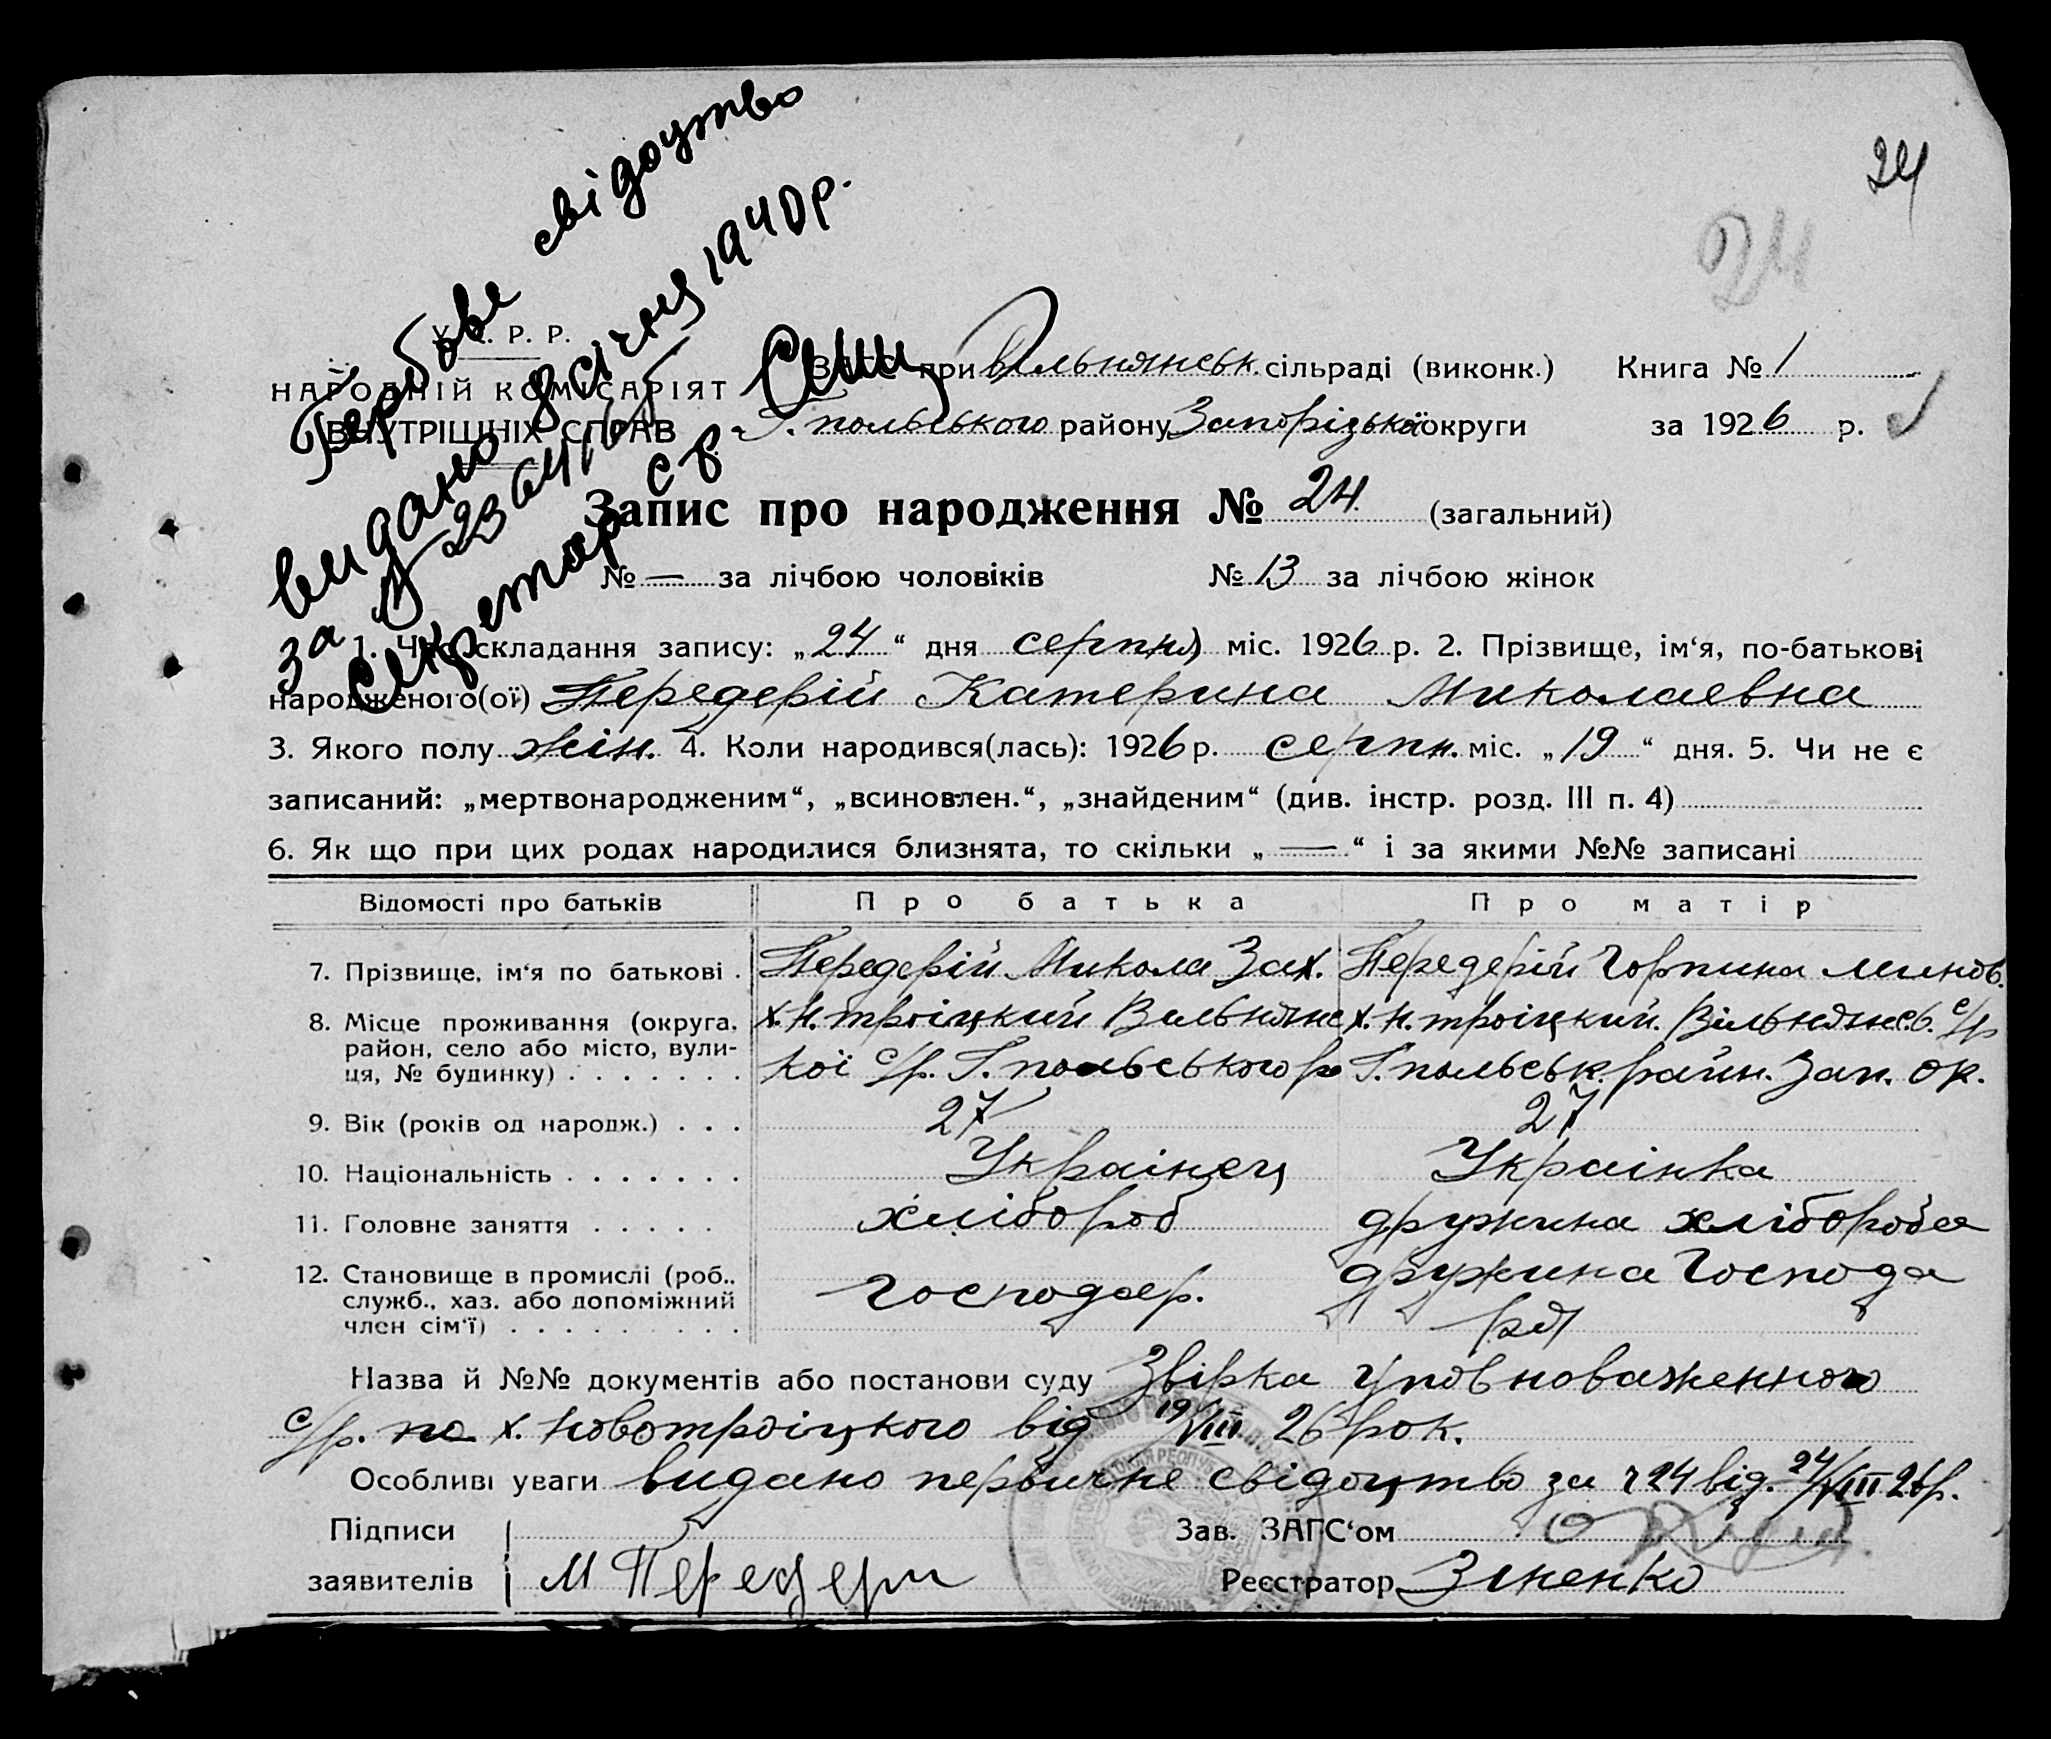 24
24
Гербове свідоцтво
видано 8 січня 1940 р.
за №
Секретар с/р
У. Р. Р.
НАРОДНІЙ КОМІСАРІЯТ
ВНУТРІШНІХ СПРАВ
ЗАГС при Вільнянськ. сільраді (виконк.) Книга № 1
Г. польського району Запорізької округи за 1926 р.
Запис про народження № 24 (загальний)
№ — за лічбою чоловіків № 13 за лічбою жінок
1. Час складання запису: „24“ дня серпня міс. 1926 р. 2. Прізвище, ім‘я, по-батькові
народженого(ої) Передерій Катерина Миколаевна
3. Якого полу жін. 4. Коли народився(лась): 1926 р. серпн. міс. „19“ дня. 5. Чи не є
записаний: „мертвонародженим“, „всиновлен.“, „знайденим“ (див. інстр. розд. III п. 4)
6. Як що при цих родах народилися близнята, то скільки „—“ і за якими №№ записані
Відомості про батьків Про батька Про матір
7. Прізвище, ім‘я по батькові . Передерій Микола Зах. Передерій Горпина
8. Місце проживання (округа, х. Н. троіцкий Вільнянс х. Н. троіцкий. Вільнянс. с/р
район, село або місто, вули-
ця, № будинку) . . . . . . . кої с/р. Г. польського р Г. польськ. район. Зап. ок.
9. Вік (років од народж.) . . . 27 27
10. Національність . . . . . . . Украінец Украінка
11. Головне заняття . . . . . хлібороб дружина хлібороба
12. Становище в промислі (роб., господар. дружина господа
служб., хаз. або допоміжний
член сім‘ї) . . . . . . . . . ря
Назва й №№ документів або постанови суду Звірка уповноваженного
с/р. по х. Новотроіцкого від 19/VIII 26 рок.
Особливі уваги видано первичне свідоцтво за ч 24 від. 24/VIII 26 р.
Підписи Зав. ЗАГС‘ом
заявителів М Передери Реєстратор Зіненко